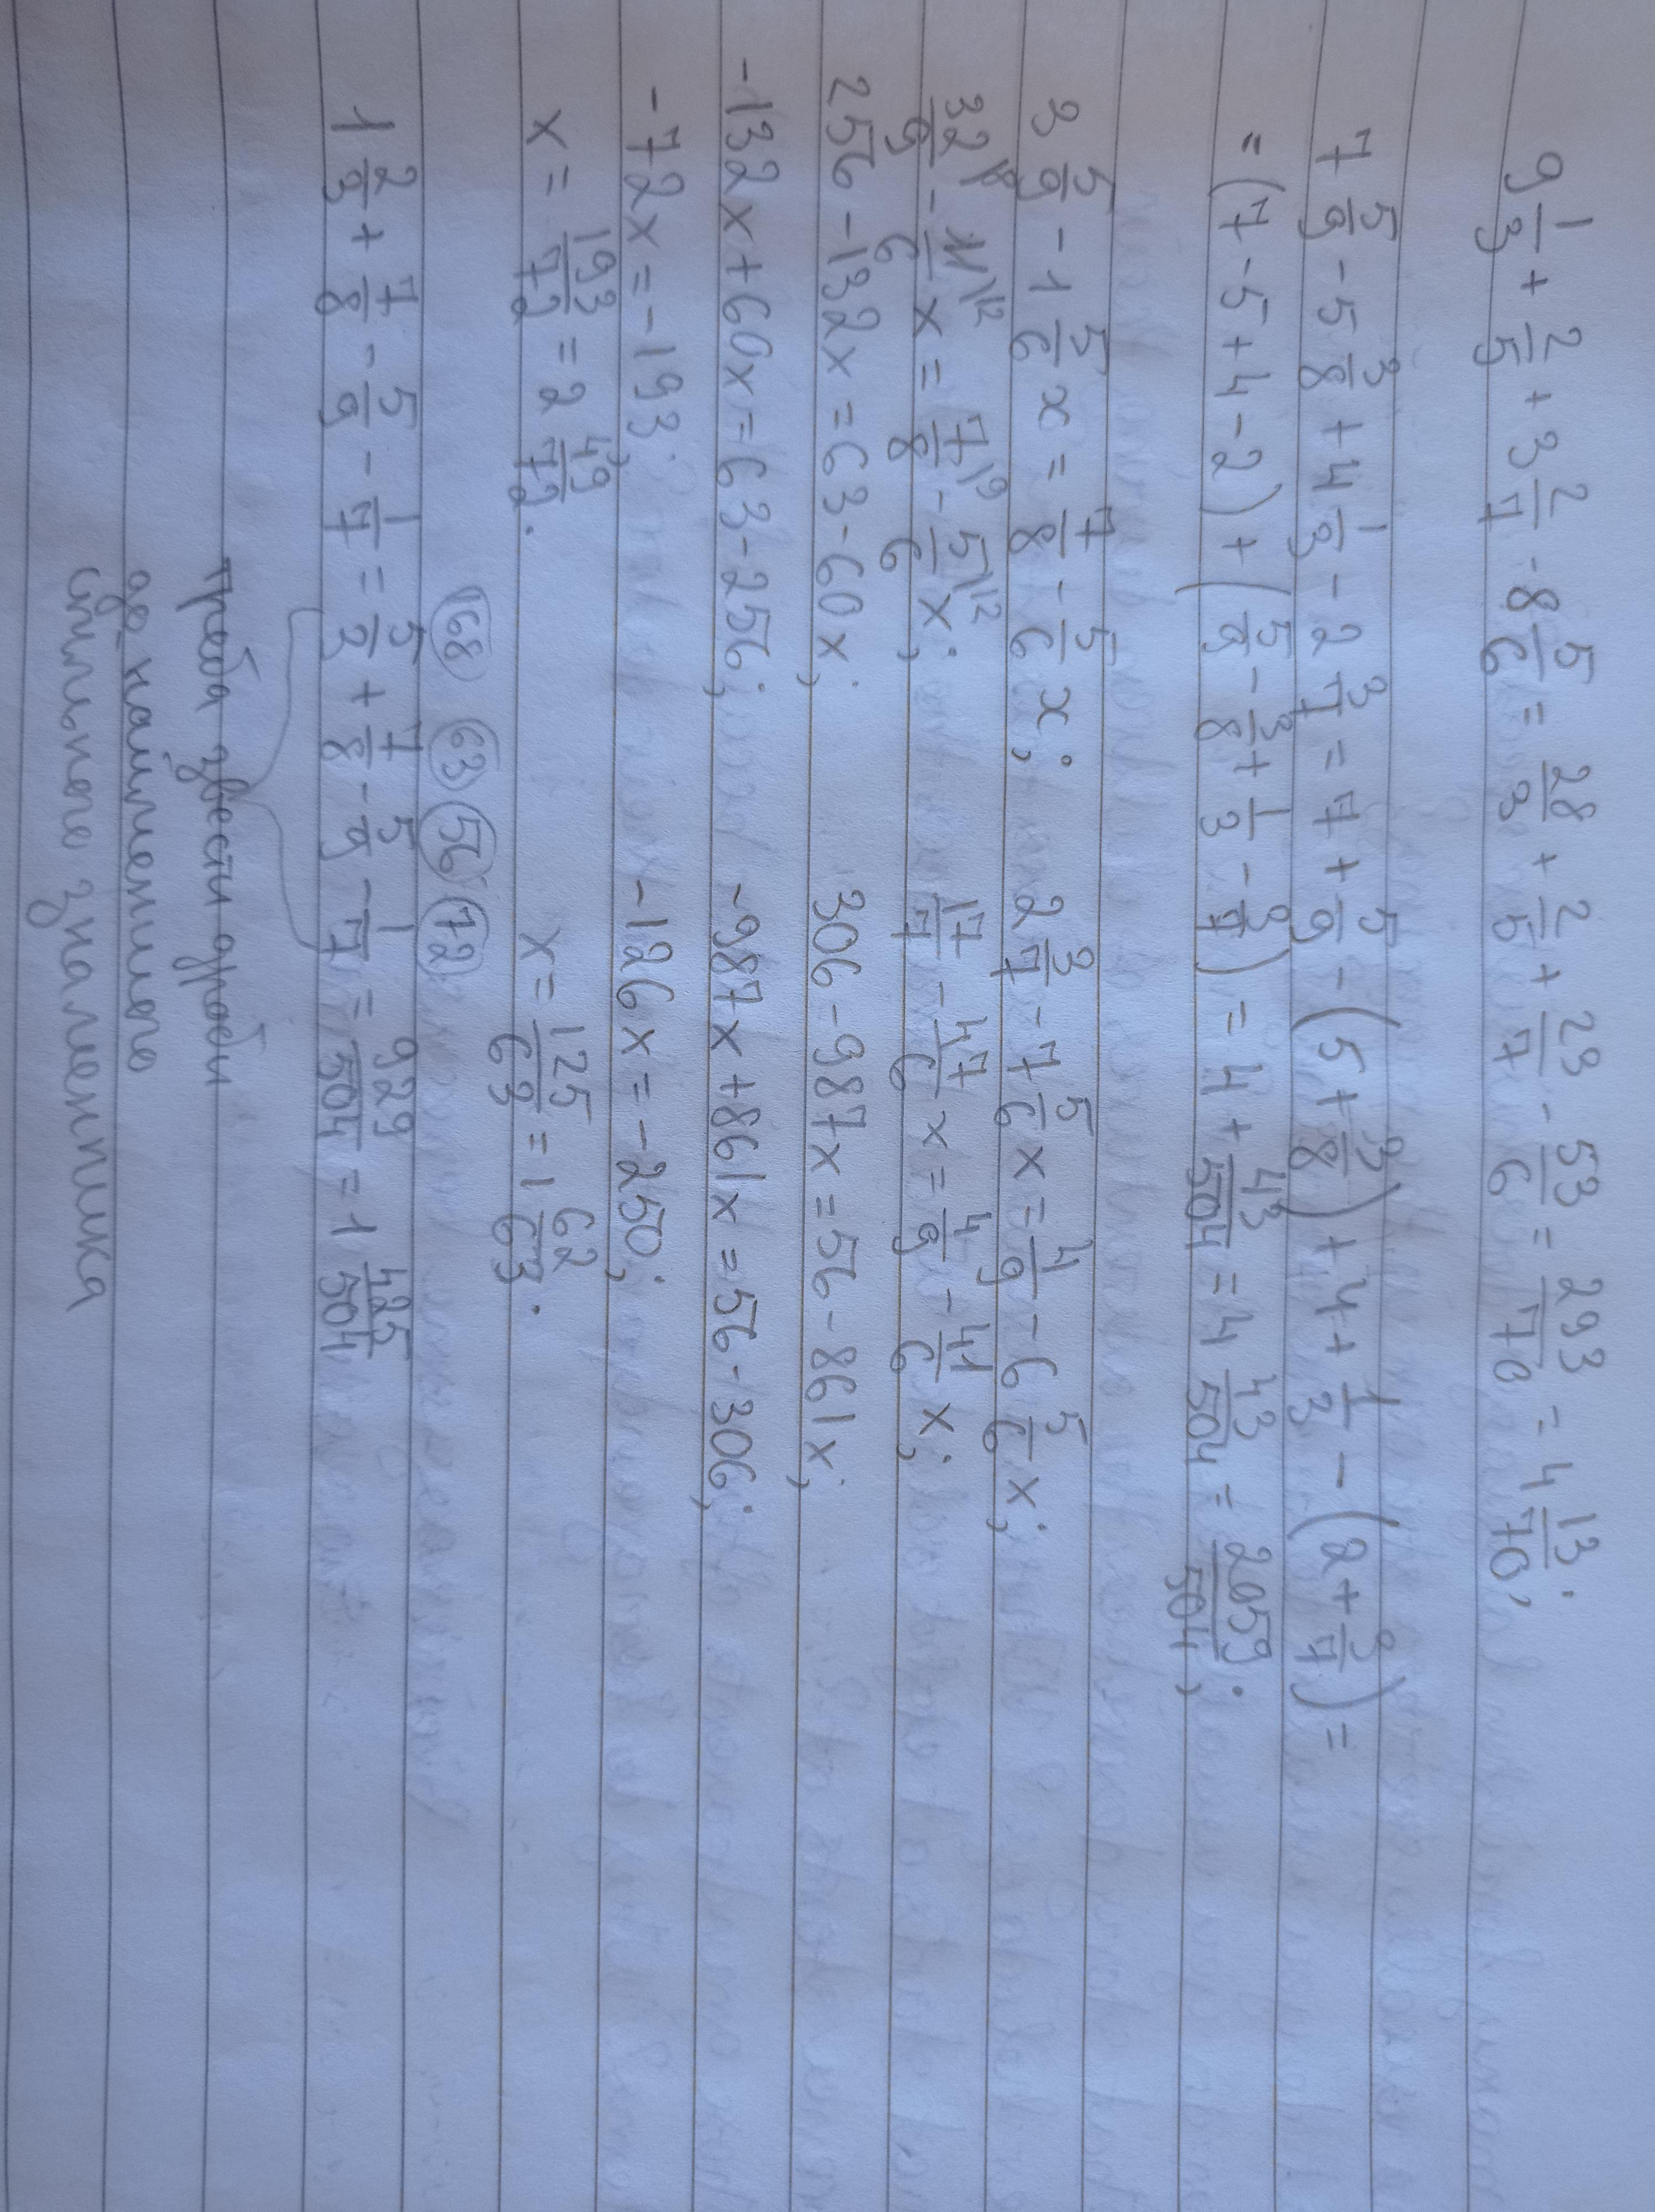 9 1/3 + 2/5 + 3 2/7 - 8 5/6 = 28/3 + 2/5 + 23/7 - 53/6 = 293/70 = 4 13/70;
7 5/9 - 5 3/8 + 4 1/3 - 2 3/7 = 7 + 5/9 - (5 + 3/8) + 4 + 1/3 - (2 + 3/7) =
= (7 - 5 + 4 - 2) + (5/9 - 3/8 + 1/3 - 3/7) = 4 + 43/504 = 4 43/504 = 2059/504;
3 5/9 - 1 5/6 x = 7/8 - 5/6 x; 2 3/7 - 7 5/6 x = 4/9 - 6 5/6 x;
32/9 |8 - 11/6 |12 x = 7/8 |9 - 5/6 |12 x; 17/7 - 47/6 x = 4/9 - 41/6 x;
256 - 132x = 63 - 60x; 306 - 987x = 56 - 861x;
-132x + 60x = 63 - 256; -987x + 861x = 56 - 306;
-72x = -193; -126x = -250;
x = 193/72 = 2 49/72. x = 125/63 = 1 62/63.
168 63 56 72
1 2/3 + 7/8 - 5/9 - 1/7 = 5/3 + 7/8 - 5/9 - 1/7 = 929/504 = 1 425/504
треба звести дроби
до найменшого
спільного знаменника